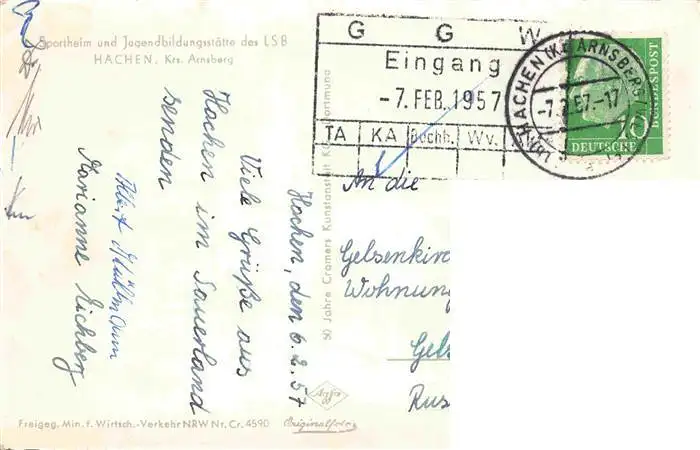 Sportheim und Jugendbildungsstätte des LSB
HACHEN, Krs. Arnsberg
Hachen, den 6.2.57
Viele Grüße aus
Hachen im Sauerland
senden
Marianne Eichberg
Freigeg. Min. f. Wirtsch.-Verkehr NRW Nr. Cr. 4590
Originalfoto
50 Jahre Cramers Kunstanstalt KG, Dortmund
G G W
Eingang
-7. FEB. 1957
TA KA Buchh. Wv.
HACHEN (Kr. ARNSBERG
-7.2.57.-17
DEUTSCHE
BUNDESPOST
10
An die
Gelsenkirc
Wohnung
Gels
Rus